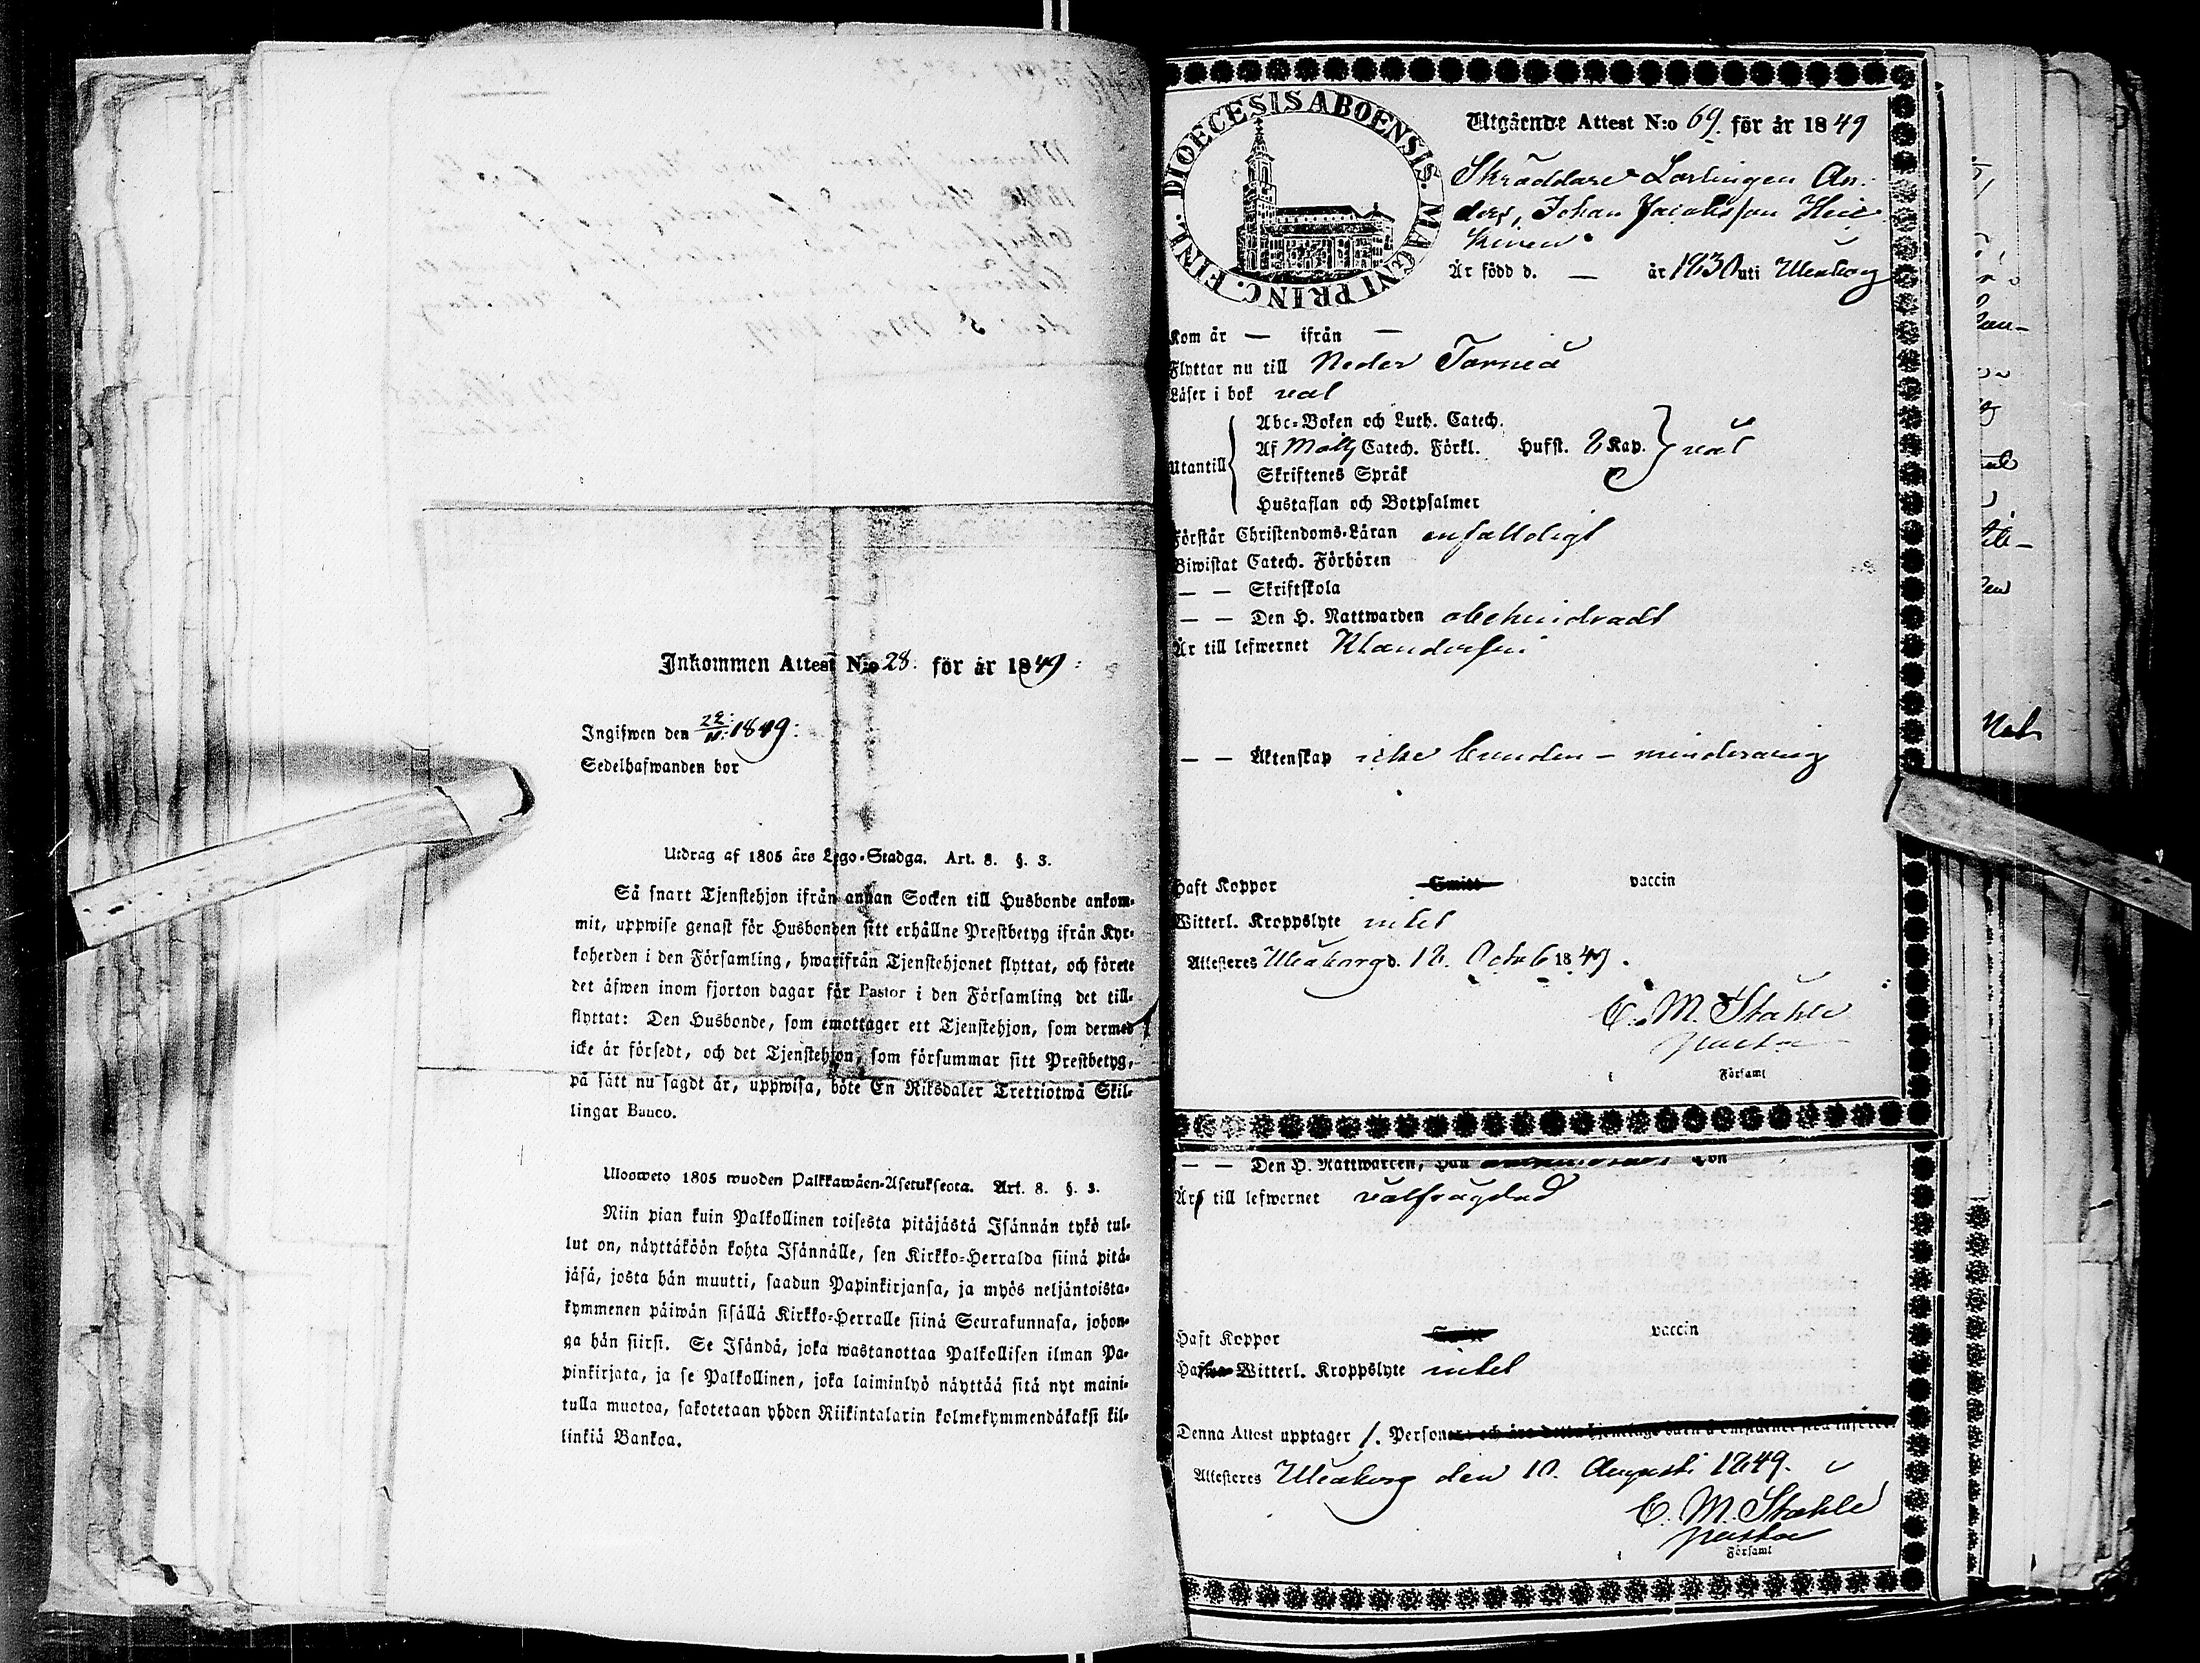 Inkommen Attest N:o 28. för år 1849.
Ingifwen den 22/11. 1849.
Sedelhafwanden bor
Utdrag af 1805 års Lego-Stadga. Art. 8. §. 3.
Så snart Tjenstehjon ifrån annan Socken till Husbonde ankom-
mit, uppwise genast för Husbonden sitt erhållne Prestbetyg ifrån Kyr-
koherden i den Församling, hwarifrån Tjenstehjonet flyttat, och förete
det äfwen inom fjorton dagar för Pastor i den Församling det till-
flyttat: Den Husbonde, som emottager ett Tjenstehjon, som dermed
icke är försedt, och det Tjenstehjon, som försummar sitt Prestbetyg,
på sätt nu sagdt är, uppwisa, böte En Riksdaler Trettiotwå Skil-
lingar Banco.
Ulosweto 1805 wuoden Palkkawäen-Asetuksesta. Art. 8. §. 3.
Niin pian kuin Palkollinen toisesta pitäjästä Isännän tykö tul-
lut on, näyttäköön kohta Isännälle, sen Kirkko-Herralda siinä pitä-
jäsä, josta hän muutti, saadun Papinkirjansa, ja myös neljäntoista-
kymmenen päiwän sisällä Kirkko-Herralle siinä Seurakunnasa, johon-
ga hän siirsi. Se Isändä, joka wastanottaa Palkollisen ilman Pa-
pinkirjata, ja se Palkollinen, joka laiminlyö näyttää sitä nyt maini-
tulla muotoa, sakotetaan yhden Riikintalarin kolmekymmendäkaksi kil-
linkiä Bankoa.
DIOECESIS ABOENSIS. MAGNI PRINC. FINL.
Utgående Attest N:o 69. för år 1849
Skräddare Lärlingen An-
ders, Johan Jacobsson Heic
kinen
Är född d. — år 1830 uti Uleåborg
Kom år — ifrån —
Flyttar nu till Neder Torneå
Läser i bok väl
Utantill
Abc-Boken och Luth. Catech.
Af Catech. Förkl. Hufst. 2 Kap. väl
Skriftenes Språk
Hustaflan och Botpsalmer
Förstår Christendoms-Läran enfalldigt
Biwistat Catech. Förhören
— — Skriftskola
— — Den H. Nattwarden obehindradt
Är till lefwernet Klanderfri
— — Äktenskap icke bunden – minderårig
Haft Koppor Smitt vaccin
Witterl. Kroppslyte intet
Attesteres Uleåborg d. 12. Octob 1849.
C. M. Ståhle
Pastor
Församl
— — Den H. Nattwarden, han
Är till lefwernet välfrägdad
Haft Koppor Smitt vaccin
Witterl. Kroppslyte intet
Denna Attest upptager 1. Person
Attesteres Uleåborg den 10. Augusti 1849.
C. M. Ståhle
Pastor
Församl